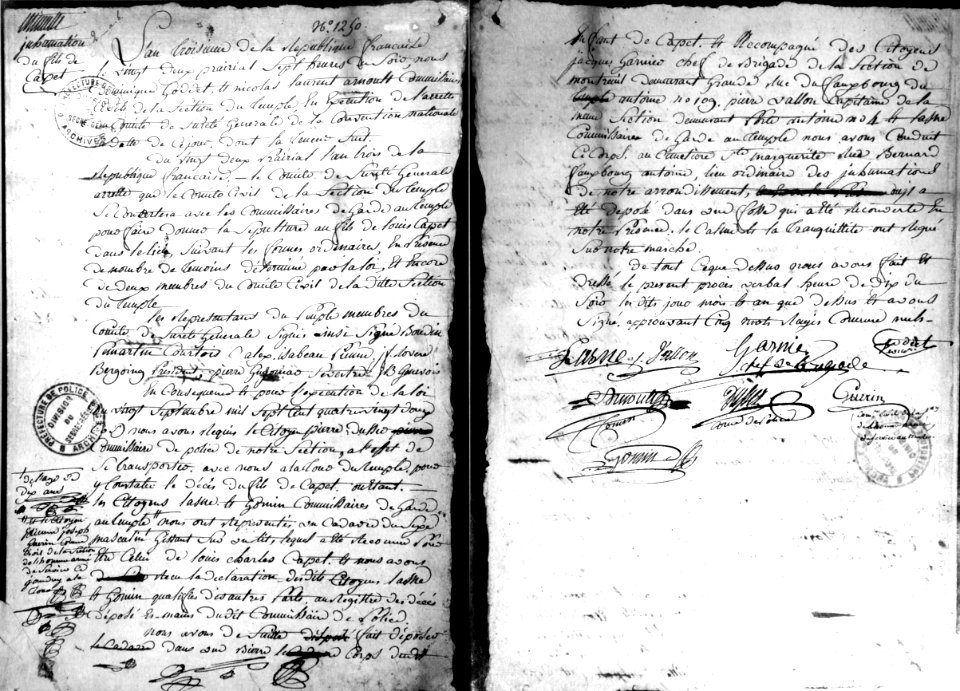 Minute
inhumation
du fils de
Capet
N° 1250.
L'an troisieme de la Republique française
le vingt deux prairial sept heures du soir nous
Dominique Goddet et nicolas laurent arnoult Commissaires
Civils de la Section du temple En execution de l'arrette
du Comité de Sureté Generale de la Convention nationale
datte de ce jour, dont la teneur suit
Du vingt deux prairial l'an trois de la
Republique française, - le Comité de Sureté Generale
arrette que le Comité Civil de la Section du temple
se concertera avec les Commissaires de garde au temple
pour faire donner la Sepulture au fils de louis Capet
dans le lieu, suivant les formes ordinaires En presence
du nombre de temoins determiné par la loi, et Encore
de deux membres du Comité Civil de la ditte Section
du temple
les Representans du peuple membres du
Comité de Sureté Generale Signés ainsi Signé Boudin
Pemartin Courtois Calès
Bergoing President, pierre Guyomar
En Consequence et pour l'execution de la loi
du vingt Septembre mil Sept Cent quatre vingt douze
nous avons requis le Citoyen pierre dusser
Commissaire de police de notre Section, a l'effet de
Se transporter, avec nous a la tour du temple, pour
y Constater le décès du fils de Capet,
les Citoyens lasne et Gomin Commissaires de Garde
au temple nous ont Representés un Cadavre du Sexe
masculin Gissant Sur un lit, lequel a été reconnu pour
être Celui de louis Charles Capet. et nous avons
recu la declaration des dits Citoyens lasne
et Gomin qualifiés d'autres parts au registre des décès
déposé ès mains du dit Commissaire de Police
nous avons de Suitte fait déposer
le Cadavre dans une Biere Corps du dit
agé de
dix ans
et le Citoyen
Etienne Joseph
Guerin
de la Section
de l'homme armé
de Service
PREFECTURE DE POLICE
ARCHIVES
Enfant de Capet. et accompagné des Citoyens
jacques Garnier chef de Brigade de la Section de
montreuil demeurant Grande Rue du fauxbourg
antoine no 109, pierre Vallon Capitaine de la
meme Section demeurant antoine no 4 et lasne
Commissaires de Garde au temple nous avons Conduit
Ce Corps. au Cimetiere Ste marguerite Rue Bernard
fauxbourg antoine, lieu ordinaire des inhumations
de notre arrondissement, ou il a
été déposé dans une fosse qui a été recouverte En
notre presence, le Calme et la tranquillité ont regné
Sur notre marche.
de tout Ce que dessus nous avons fait et
dressé le present proces verbal heure de dix du
Soir les dits jour mois et an que dessus et avons
Signé, approuvant Cinq mots Rayés Comme nuls-
Lasne
Vallon
Garnier
chef de brigade
Goddet
Arnoult
Dusser
Guerin
Comre de police
Gomin
PREFECTURE DE POLICE
ARCHIVES